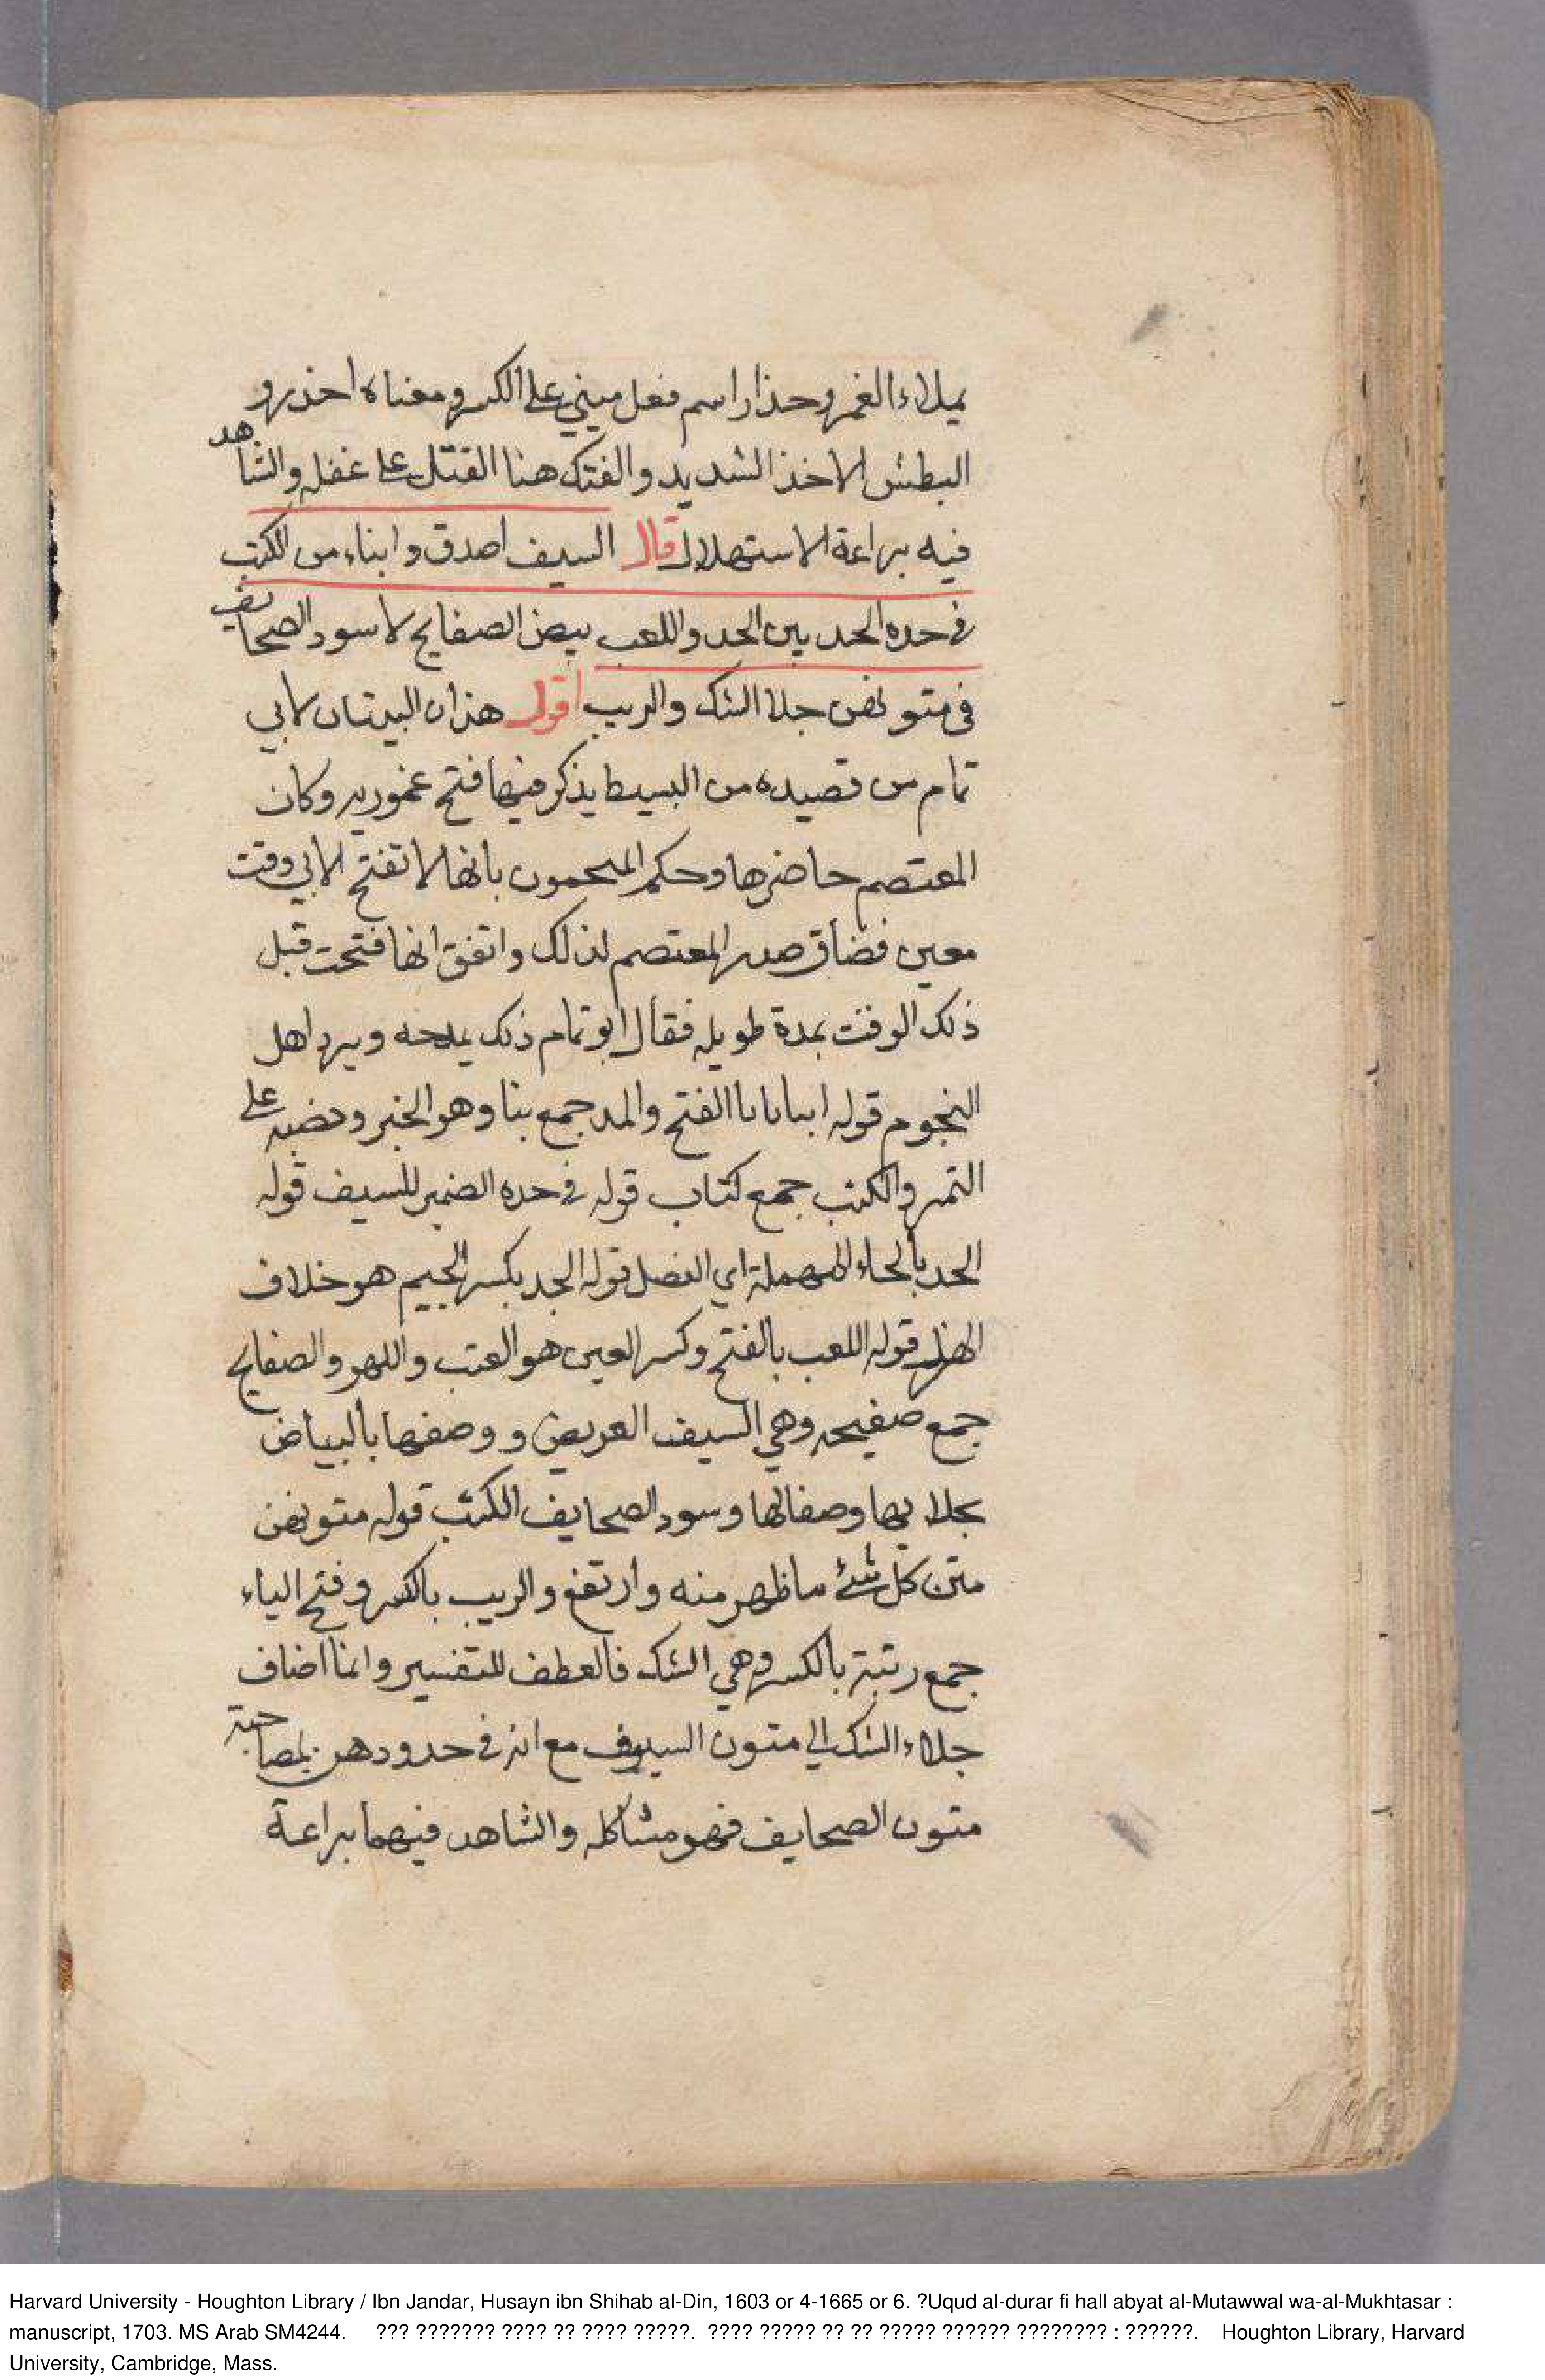 يملاء الفم وحذار اسم فعل مبني على الكسر ومعناه احذر و
البطش الاخذ الشديد والفتك هنا القتل على غفله والشاهد
فيه براعة الاستهلال قال السيف اصدق وابناء من الكتب
في حده الحد بين الحد واللعب بيض الصفايح لا سود الصحايف
في متونهن جلا الشك والريب اقول هذان البيتان لابي
تمام من قصيده من البسيط يذكر فيها فتح عموريه وكان
المعتصم حاضرها وحكم المنجمون بانها لا تفتح الا في وقت
معين فضاق صدر المعتصم لذلك واتفق انها فتحت قبل
ذلك الوقت بمدة طويله فقال ابو تمام ذلك يمدحه ويرد اهل
النجوم قوله ابنا بالفتح والمد جمع بنا وهو الخبر ونصبه على
التمييز والكتب جمع كتاب قوله في حده الضمير للسيف قوله
الحد بالحاء المهملة اي الفصل قوله الجد بكسر الجيم هو خلاف
الهزل قوله اللعب بالفتح وكسر العين هو العبث واللهو والصفايح
جمع صفيحه وهي السيف العريض و وصفها بالبياض
بجلايها وصقالها وسود الصحايف الكتب قوله متونهن
متن كل شئ ما ظهر منه وارتفع والريب بالكسر وفتح الياء
جمع ريبة بالكسر وهي الشك فالعطف للتفسير وانما اضاف
جلاء الشك الى متون السيوف مع انه في حدودهن لمصاحبة
متون الصحايف فهو مشاكله والشاهد فيهما براعة
Harvard University - Houghton Library / Ibn Jandar, Husayn ibn Shihab al-Din, 1603 or 4-1665 or 6. ?Uqud al-durar fi hall abyat al-Mutawwal wa-al-Mukhtasar :
manuscript, 1703. MS Arab SM4244. ??? ??????? ???? ?? ???? ?????. ???? ????? ?? ?? ????? ?????? ???????? : ??????. Houghton Library, Harvard
University, Cambridge, Mass.